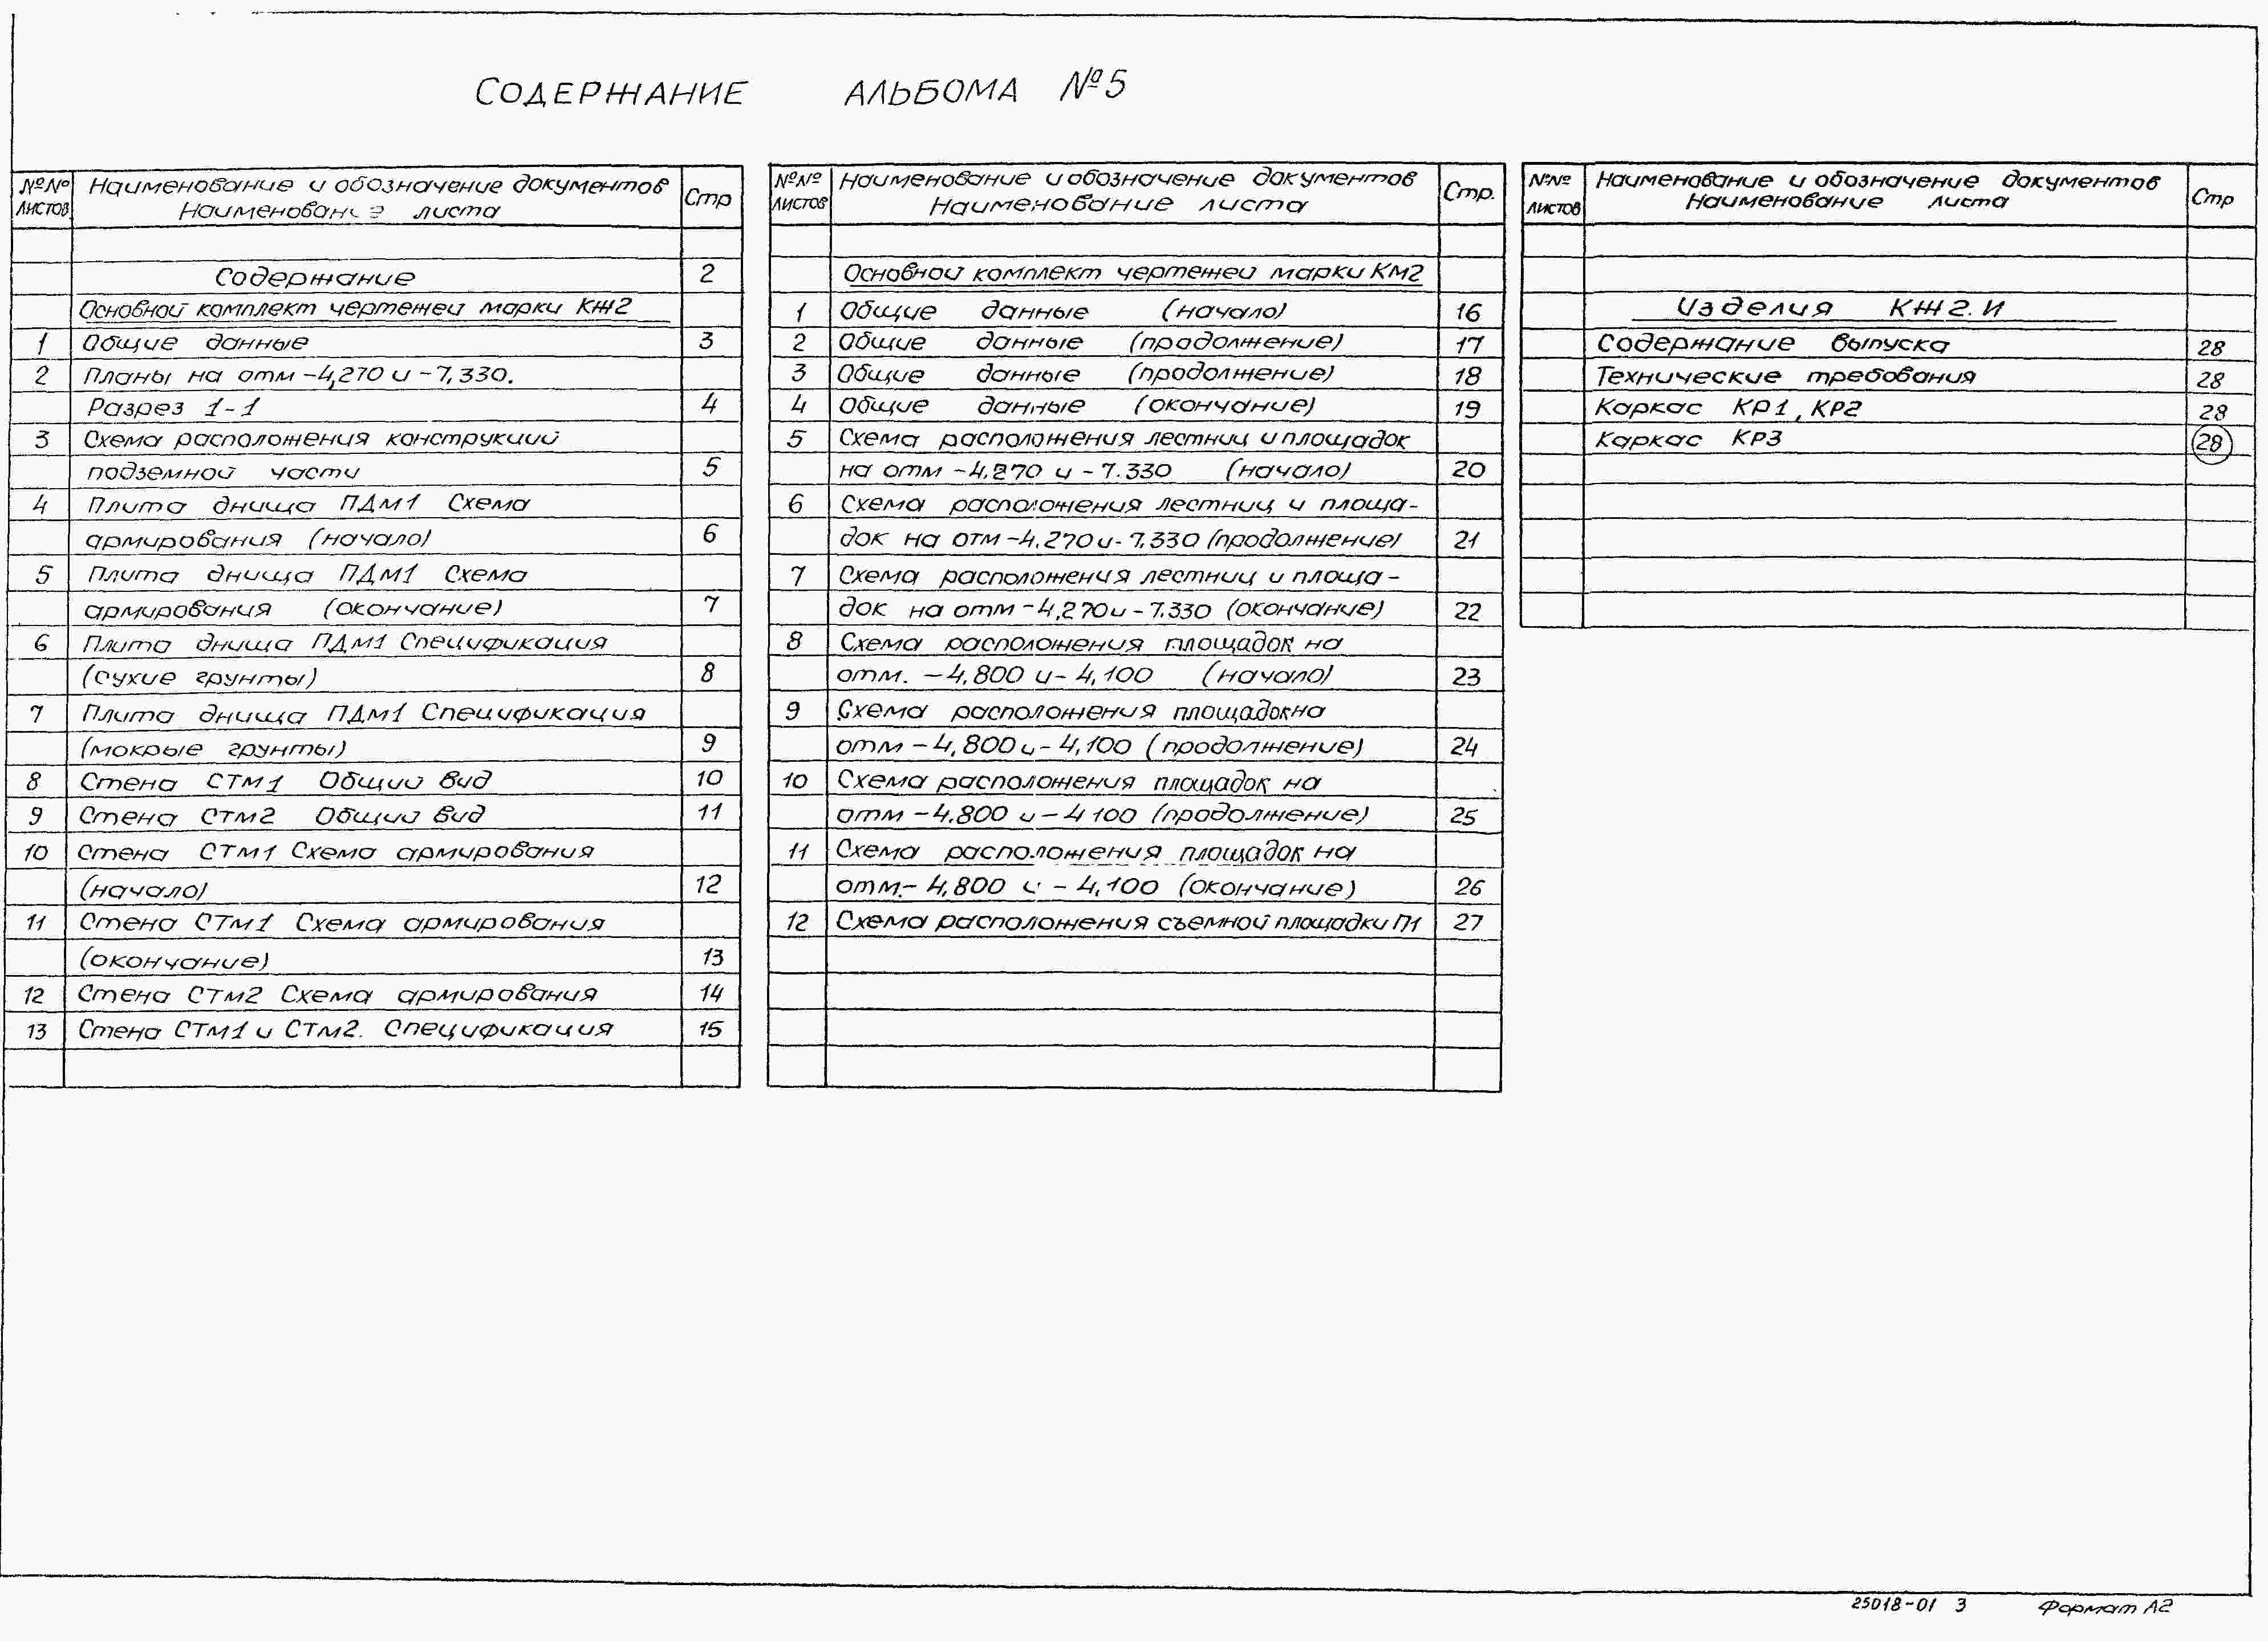 СОДЕРЖАНИЕ АЛЬБОМА №5
№№ Наименование и обозначение документов Стр
листов Наименование листа
Содержание 2
Основной комплект чертежей марки КЖ2
1 Общие данные 3
2 Планы на отм -4,270 и -7,330.
Разрез 1-1 4
3 Схема расположения конструкций
подземной части 5
4 Плита днища ПДм1 Схема
армирования (начало) 6
5 Плита днища ПДм1 Схема
армирования (окончание) 7
6 Плита днища ПДм1 Спецификация
(сухие грунты) 8
7 Плита днища ПДм1 Спецификация
(мокрые грунты) 9
8 Стена СТм1 Общий вид 10
9 Стена СТм2 Общий вид 11
10 Стена СТм1 Схема армирования
(начало) 12
11 Стена СТм1 Схема армирования
(окончание) 13
12 Стена СТм2 Схема армирования 14
13 Стена СТм1 и СТм2. Спецификация 15
№№ Наименование и обозначение документов Стр.
листов Наименование листа
Основной комплект чертежей марки КМ2
1 Общие данные (начало) 16
2 Общие данные (продолжение) 17
3 Общие данные (продолжение) 18
4 Общие данные (окончание) 19
5 Схема расположения лестниц и площадок
на отм -4.270 и -7.330 (начало) 20
6 Схема расположения лестниц и площа-
док на отм -4.270 и -7.330 (продолжение) 21
7 Схема расположения лестниц и площа-
док на отм -4,270 и -7.330 (окончание) 22
8 Схема расположения площадок на
отм. -4,800 и -4,100 (начало) 23
9 Схема расположения площадок на
отм -4,800 и -4,100 (продолжение) 24
10 Схема расположения площадок на
отм -4.800 и -4 100 (продолжение) 25
11 Схема расположения площадок на
отм.- 4,800 и -4,100 (окончание) 26
12 Схема расположения съемной площадки П1 27
№№ Наименование и обозначение документов Стр
листов Наименование листа
Изделия КЖ2.И
Содержание выпуска 28
Технические требования 28
Каркас КР1, КР2 28
Каркас КР3 28
25018-01 3 Формат А2